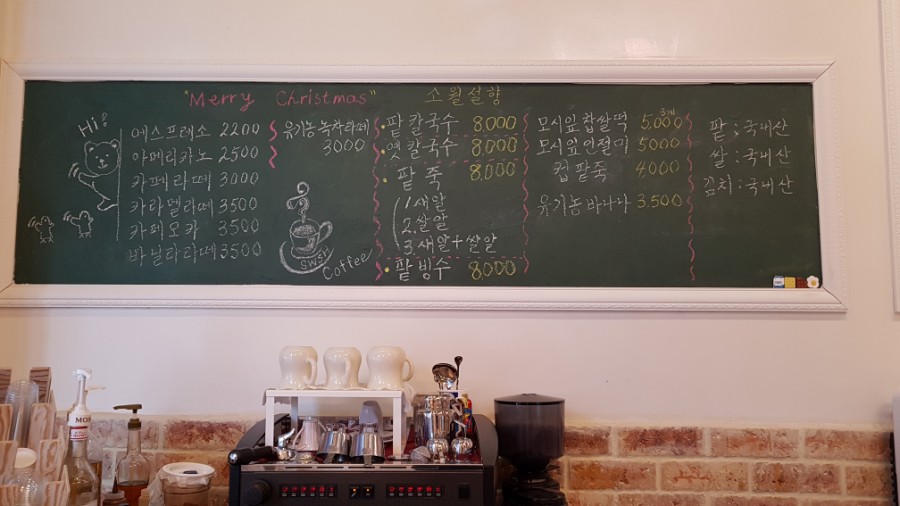 "Merry Christmas"
소월설향
Hi!
에스프레소 2200
아메리카노 2500
카페라떼 3000
카라멜라떼 3500
카페모카 3500
바닐라라떼 3500
유기농 녹차라떼
3000
SWSH
Coffee
팥칼국수 8,000
옛칼국수 8,000
팥죽 8,000
1. 새알
2. 쌀알
3. 새알+쌀알
팥빙수 8,000
모시잎찹쌀떡 3개 5,000
모시잎인절미 5000
컵팥죽 4000
유기농바나나 3,500
팥 : 국내산
쌀 : 국내산
김치 : 국내산